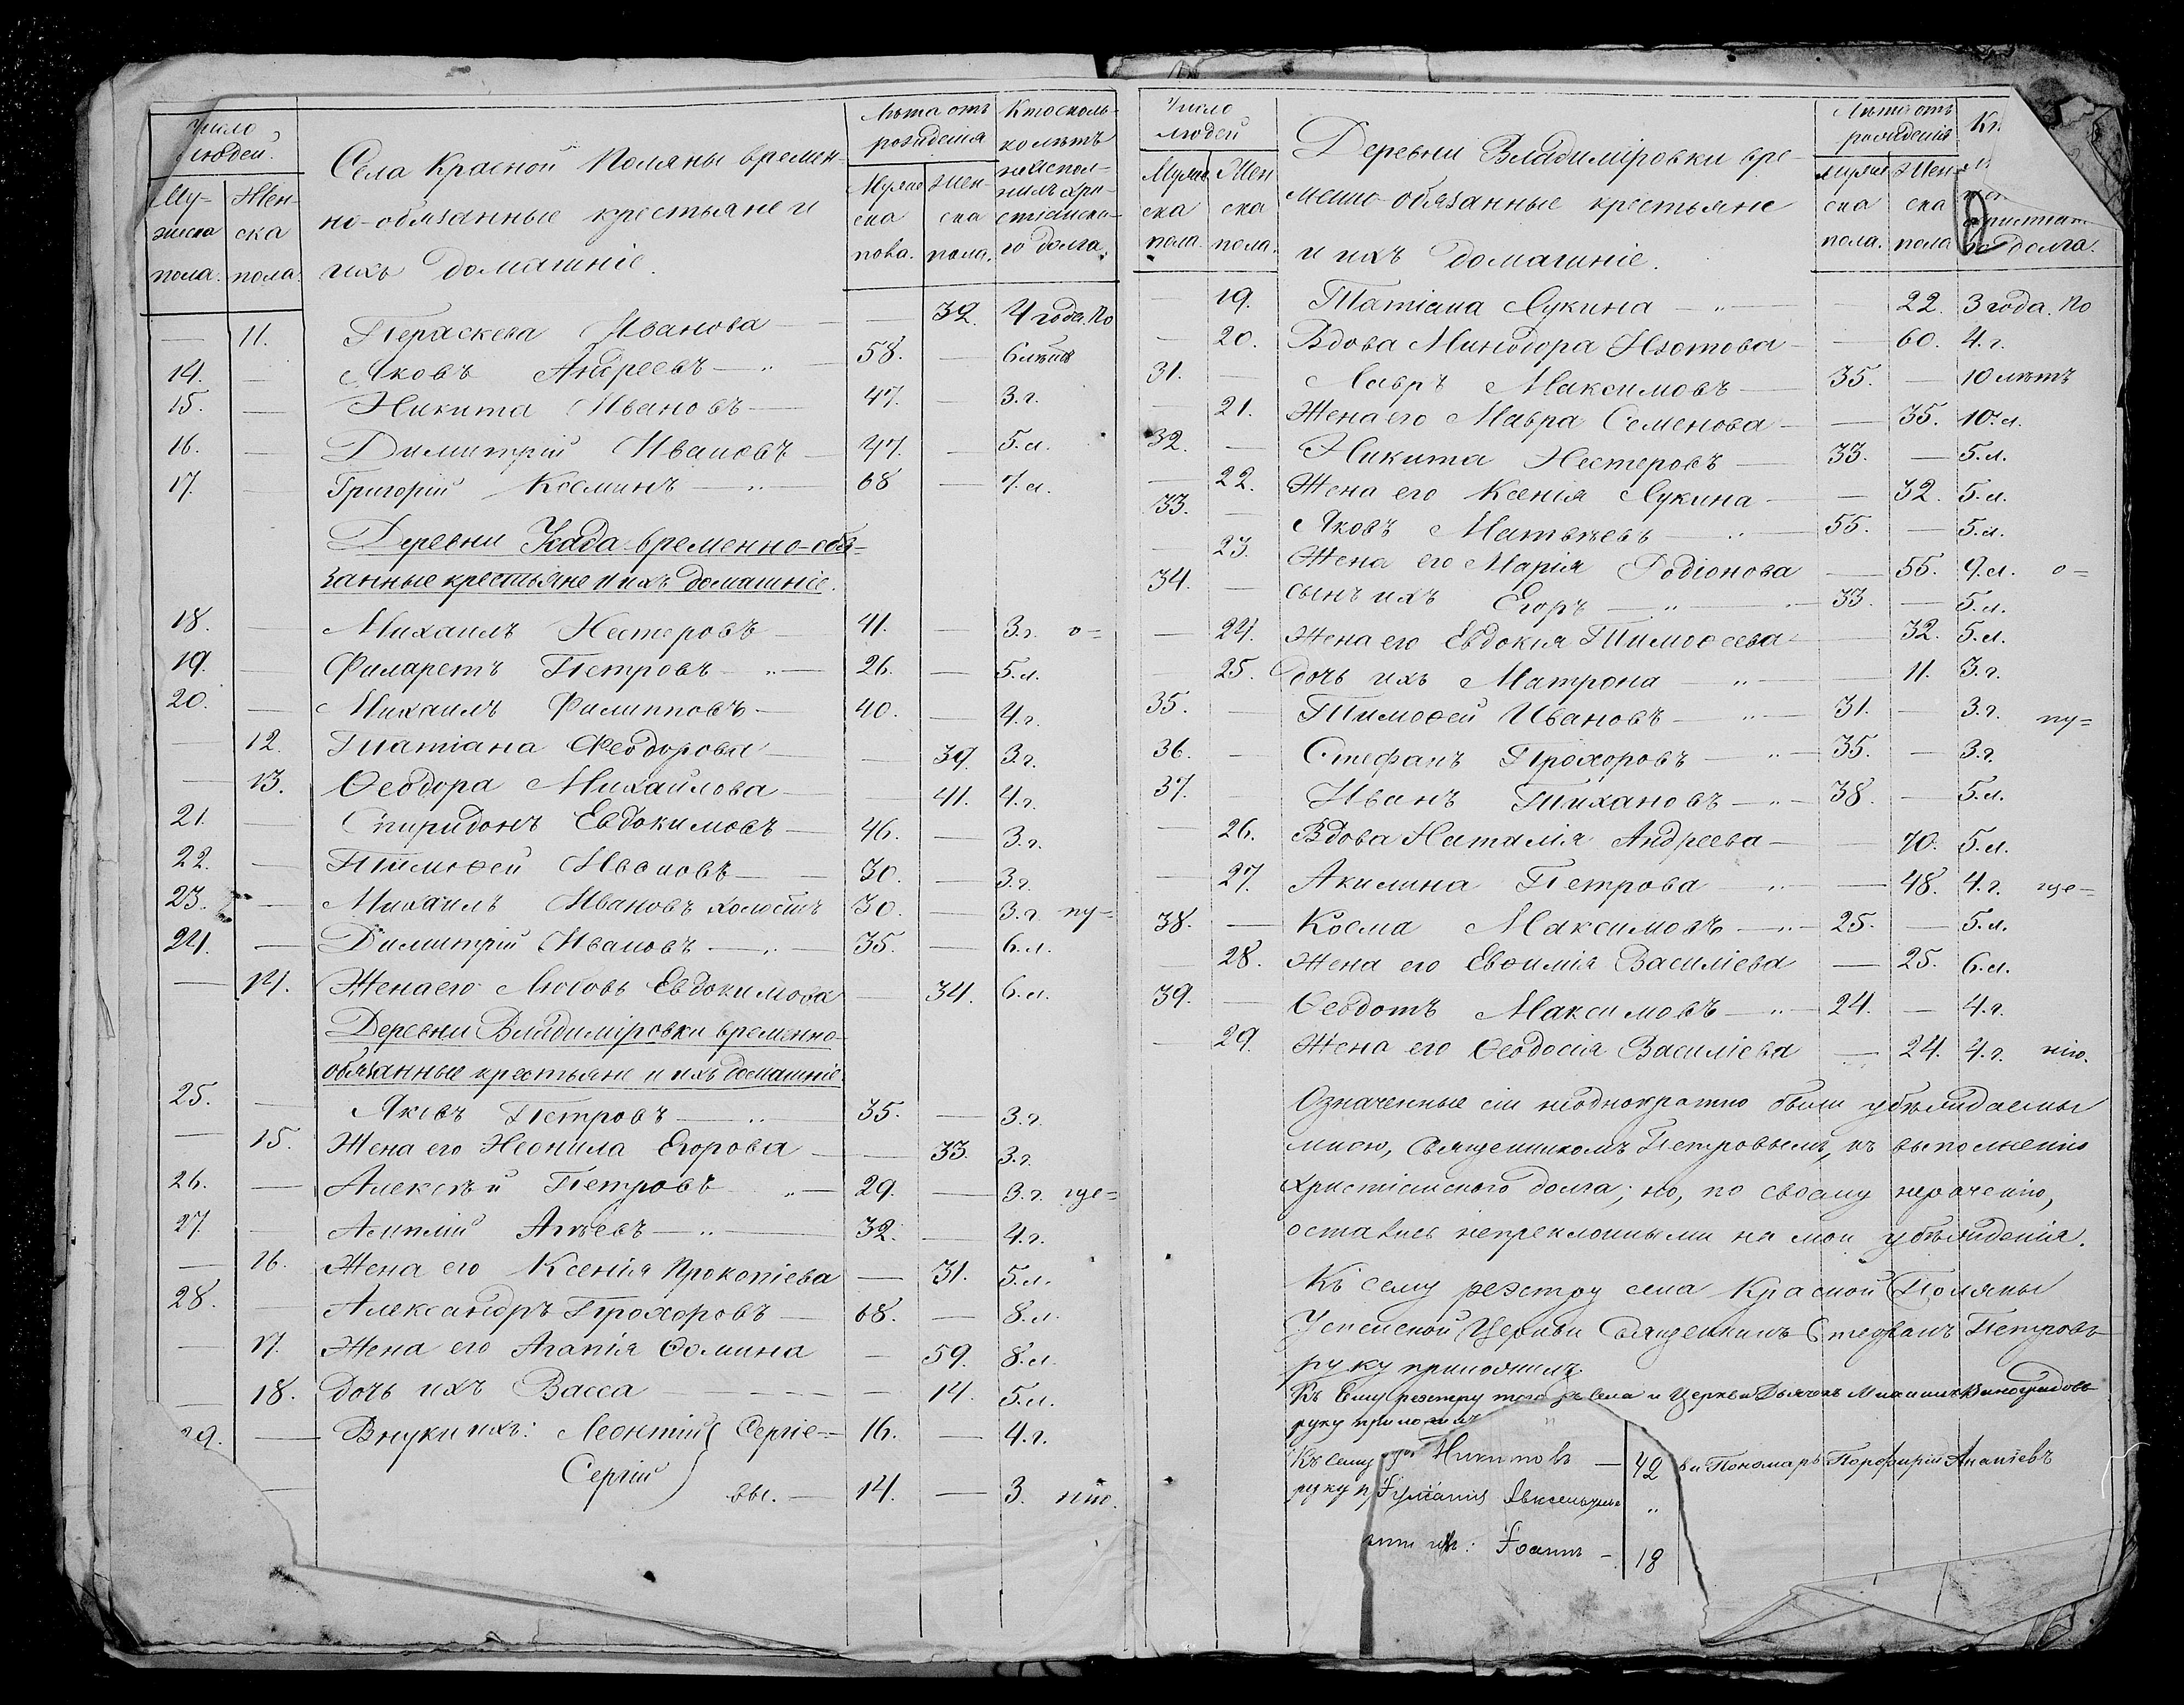 Число людей.
Му-
жеска
пола.
Жен-
ска
пола.
Села Красной Поляны времен-
но-обязанные крестьяне и
ихъ домашніе.
Лѣта отъ
рожденія
Мужес
ска
пола.
Жен-
ска
пола.
Кто сколь-
ко лѣтъ
неиспол-
нилъ хри-
стіанска-
го долга.
— 11. Пераскева Иванова — — 32. 4 года. По
14. — Яковъ Андреевъ — „ — 58. — 6 лѣтъ
15. — Никита Ивановъ — 47. — 3. г.
16. — Димитрій Ивановъ — 47. — 5. л.
17. — Григорій Косминъ — „ — 68 — 7. л.
Деревни Када временно-обя-
занные крестьяне и ихъ домашніе.
18. — Михаилъ Нестеровъ — 41. — 3. г. о=
19. — Филаретъ Петровъ — „ — 26. — 5. л.
20. — Михаилъ Филипповъ — 40. — 4. г.
— 12. Татіана Феодорова — — 39. 3. г.
— 13. Ѳеодора Михайлова — — 41. 4. г.
21. — Спиридонъ Евдокимовъ — 46. — 3. г.
22. — Тимоѳей Ивановъ — 30. — 3. г.
23. — Михаилъ Ивановъ холостъ 30. — 3. г. пу=
24. — Димитрій Ивановъ — „ — 35. — 6. л.
— 14. Жена его Любовь Евдокимова — 34. 6. л.
Деревни Владиміровки временно-
обязанные крестьяне и ихъ домашніе.
25. — Яковъ Петровъ — „ — 35. — 3. г.
— 15. Жена его Неонила Егорова — — 33. 3. г.
26. — Алексѣй Петровъ „ — 29. — 3. г. где=
27. — Амплій Агѣевъ — „ — 32. — 4. г.
— 16. Жена его Ксенія Прокопіева — 31. 5. л.
28. — Александръ Прохоровъ — 68. — 8. л.
— 17. Жена его Агапія Ѳомина — 59. 8. л.
— 18. Дочь ихъ Васса — — 14. 5. л.
29. — Внуки ихъ: Леонтій Сергіе- 16. — 4. г.
— Сергій вы. — 14. — 3. нію.
Число
людей
Мужес
ска
пола.
Жен
ска
пола.
Деревни Владиміровки вре-
менно-обязанные крестьяне
и ихъ домашніе.
Лѣта отъ
рожденія
Мужес
ска
пола.
Жен-
ска
пола
го долга.
— 19. Татіана Лукина — „ — — 22. 3 года. По
— 20. Вдова Минодора Изотова — — 60. 4. г.
31. — Лавръ Максимовъ — 35. — 10 лѣтъ
— 21. Жена его Мавра Семенова — — 35. 10. л.
32. — Никита Нестеровъ — 33. — 5. л.
— 22. Жена его Ксенія Лукина — — 32. 5. л.
33. — Яковъ Матвѣевъ — „ — 55. — 5. л.
— 23. Жена его Марія Родіонова — 55. 9. л. о=
34. — сынъ ихъ Егоръ — „ — 33. — 5. л.
— 24. Жена его Евдокія Тимоѳеева — 32. 5. л.
— 25. дочь ихъ Матрона — „ — — 11. 3. г.
35. — Тимоѳей Ивановъ — „ — 31. — 3. г. пу=
36. — Стефанъ Прохоровъ — „ — 35. — 3. г.
37. — Иванъ Тихановъ — „ — 38. — 5. л.
— 26. Вдова Наталія Андреева — — 70. 5. л.
— 27. Акилина Петрова — „ — — 48. 4. г. где=
38. — Косма Максимовъ — „ — 25. — 5. л.
— 28. Жена его Евѳимія Василіева — 25. 6. л.
39. — Ѳеодотъ Максимовъ — „ — 24. — 4. г.
— 29. Жена его Ѳеодосія Василіева — 24. 4. г. нію.
Означенные сіи неоднократно были убѣждаемы
мною, Священникомъ Петровымъ, къ выполненію
христіанского долга; но, по своему нерачению,
остались непреклонными на мои убѣжденія.
Къ сему реэстру села Красной Поляны
Успенской Церкви Священникъ Стефанъ Петровъ
руку приложилъ.
Къ Сему реэстру того же Села и Церкви Дьячекъ Михаилъ Виноградовъ
руку приложилъ „
Къ сему Никитовъ — 42 Пономарь Порфирій Ананіевъ
руку п „
ихъ: Іоаннъ — 18